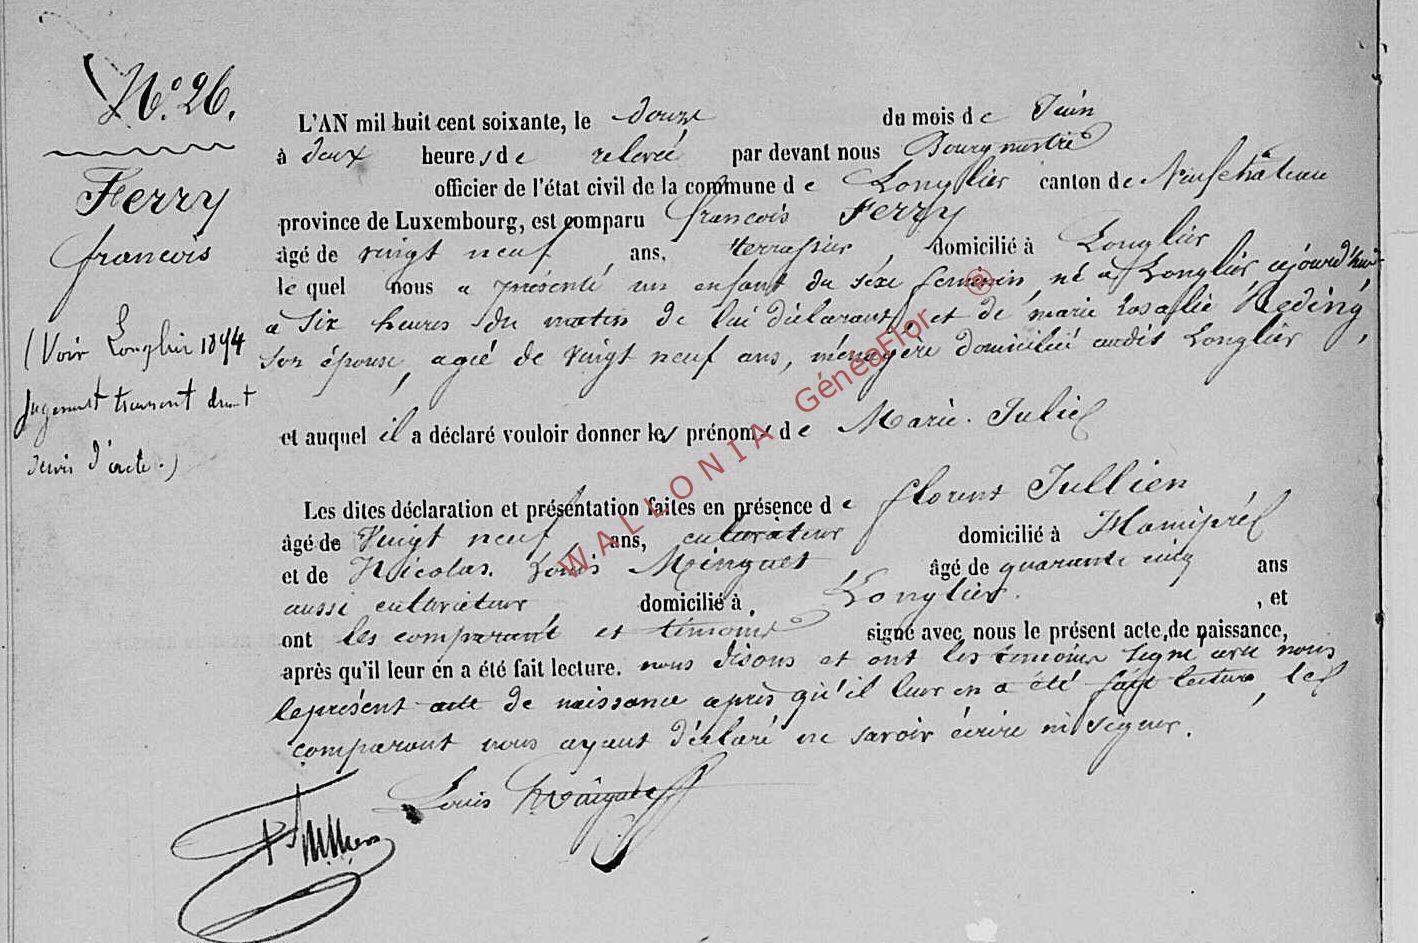 N.° 26.
Ferry
francois
(Voir Longlier 1894
Jugement
d'acte.)
L'AN mil huit cent soixante, le douze du mois de Juin
à deux heures de relevée par devant nous Bourgmestre
officier de l'état civil de la commune de Longlier canton de Neufchâteau
province de Luxembourg, est comparu francois Ferry
âgé de vingt neuf ans, terrassier, domicilié à Longlier
le quel nous a présenté un enfant du séxe feminin, né a Longlier, ajourd'hui
a six heures du matin de lui déclarant, et de marie rosalie Reding,
son épouse, agé de vingt neuf ans, ménagère domicilié audit Longlier,
et auquel il a déclaré vouloir donner les prénoms de Marie. Julie
Les dites déclaration et présentation faites en présence de florent Jullien
âgé de Vingt neuf ans, cultivateur domicilié à Hamipré
et de Nicolas. Louis Minguet âgé de quarante cinq ans
aussi cultivateur domicilié à Longlier. , et
ont les comparant et témoins signé avec nous le présent acte de naissance,
après qu'il leur en a été fait lecture. nous disons et ont les temoins signé avec nous
le présent acte de naissance après qu'il leur en a été fait lecture, le
comparant nous ayant déclaré ne savoir écrire ni signer.
Louis
WALLONIA GénéaFlor ®